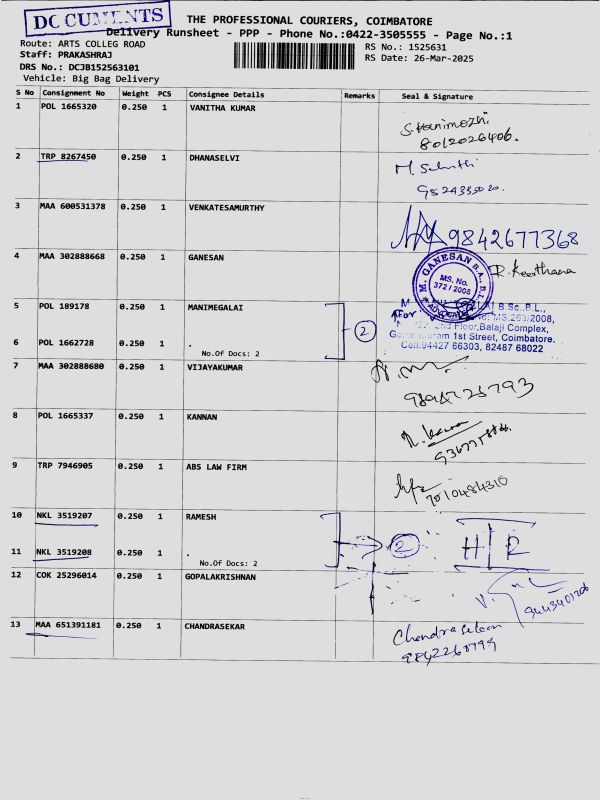 DOCUMENTS
THE PROFESSIONAL COURIERS, COIMBATORE
Delivery Runsheet - PPP - Phone No.:0422-3505555 - Page No.:1
Route: ARTS COLLEG ROAD
RS No.: 1525631
Staff: PRAKASHRAJ
RS Date: 26-Mar-2025
DRS No.: DCJB152563101
Vehicle: Big Bag Delivery
S No Consignment No Weight PCS Consignee Details Remarks Seal & Signature
1 POL 1665320 0.250 1 VANITHA KUMAR
8012026406.
2 TRP 8267450 0.250 1 DHANASELVI
3 MAA 600531378 0.250 1 VENKATESAMURTHY
9842677368
4 MAA 302888668 0.250 1 GANESAN
R. Keerthana
M. GANESAN B.A.,B.L.
MS. No.
372 / 2008
ADVOCATE
5 POL 189178 0.250 1 MANIMEGALAI
2
B Sc.,B.L.,
2nd Floor, Balaji Complex,
1st Street, Coimbatore.
Cell:94427 66303, 82487 68022
6 POL 1662728 0.250 1 .
No.Of Docs: 2
7 MAA 302888680 0.250 1 VIJAYAKUMAR
8 POL 1665337 0.250 1 KANNAN
9 TRP 7946905 0.250 1 ABS LAW FIRM
7010484310
10 NKL 3519207 0.250 1 RAMESH
2
H R
11 NKL 3519208 0.250 1 .
No.Of Docs: 2
12 COK 25296014 0.250 1 GOPALAKRISHNAN
13 MAA 651391181 0.250 1 CHANDRASEKAR